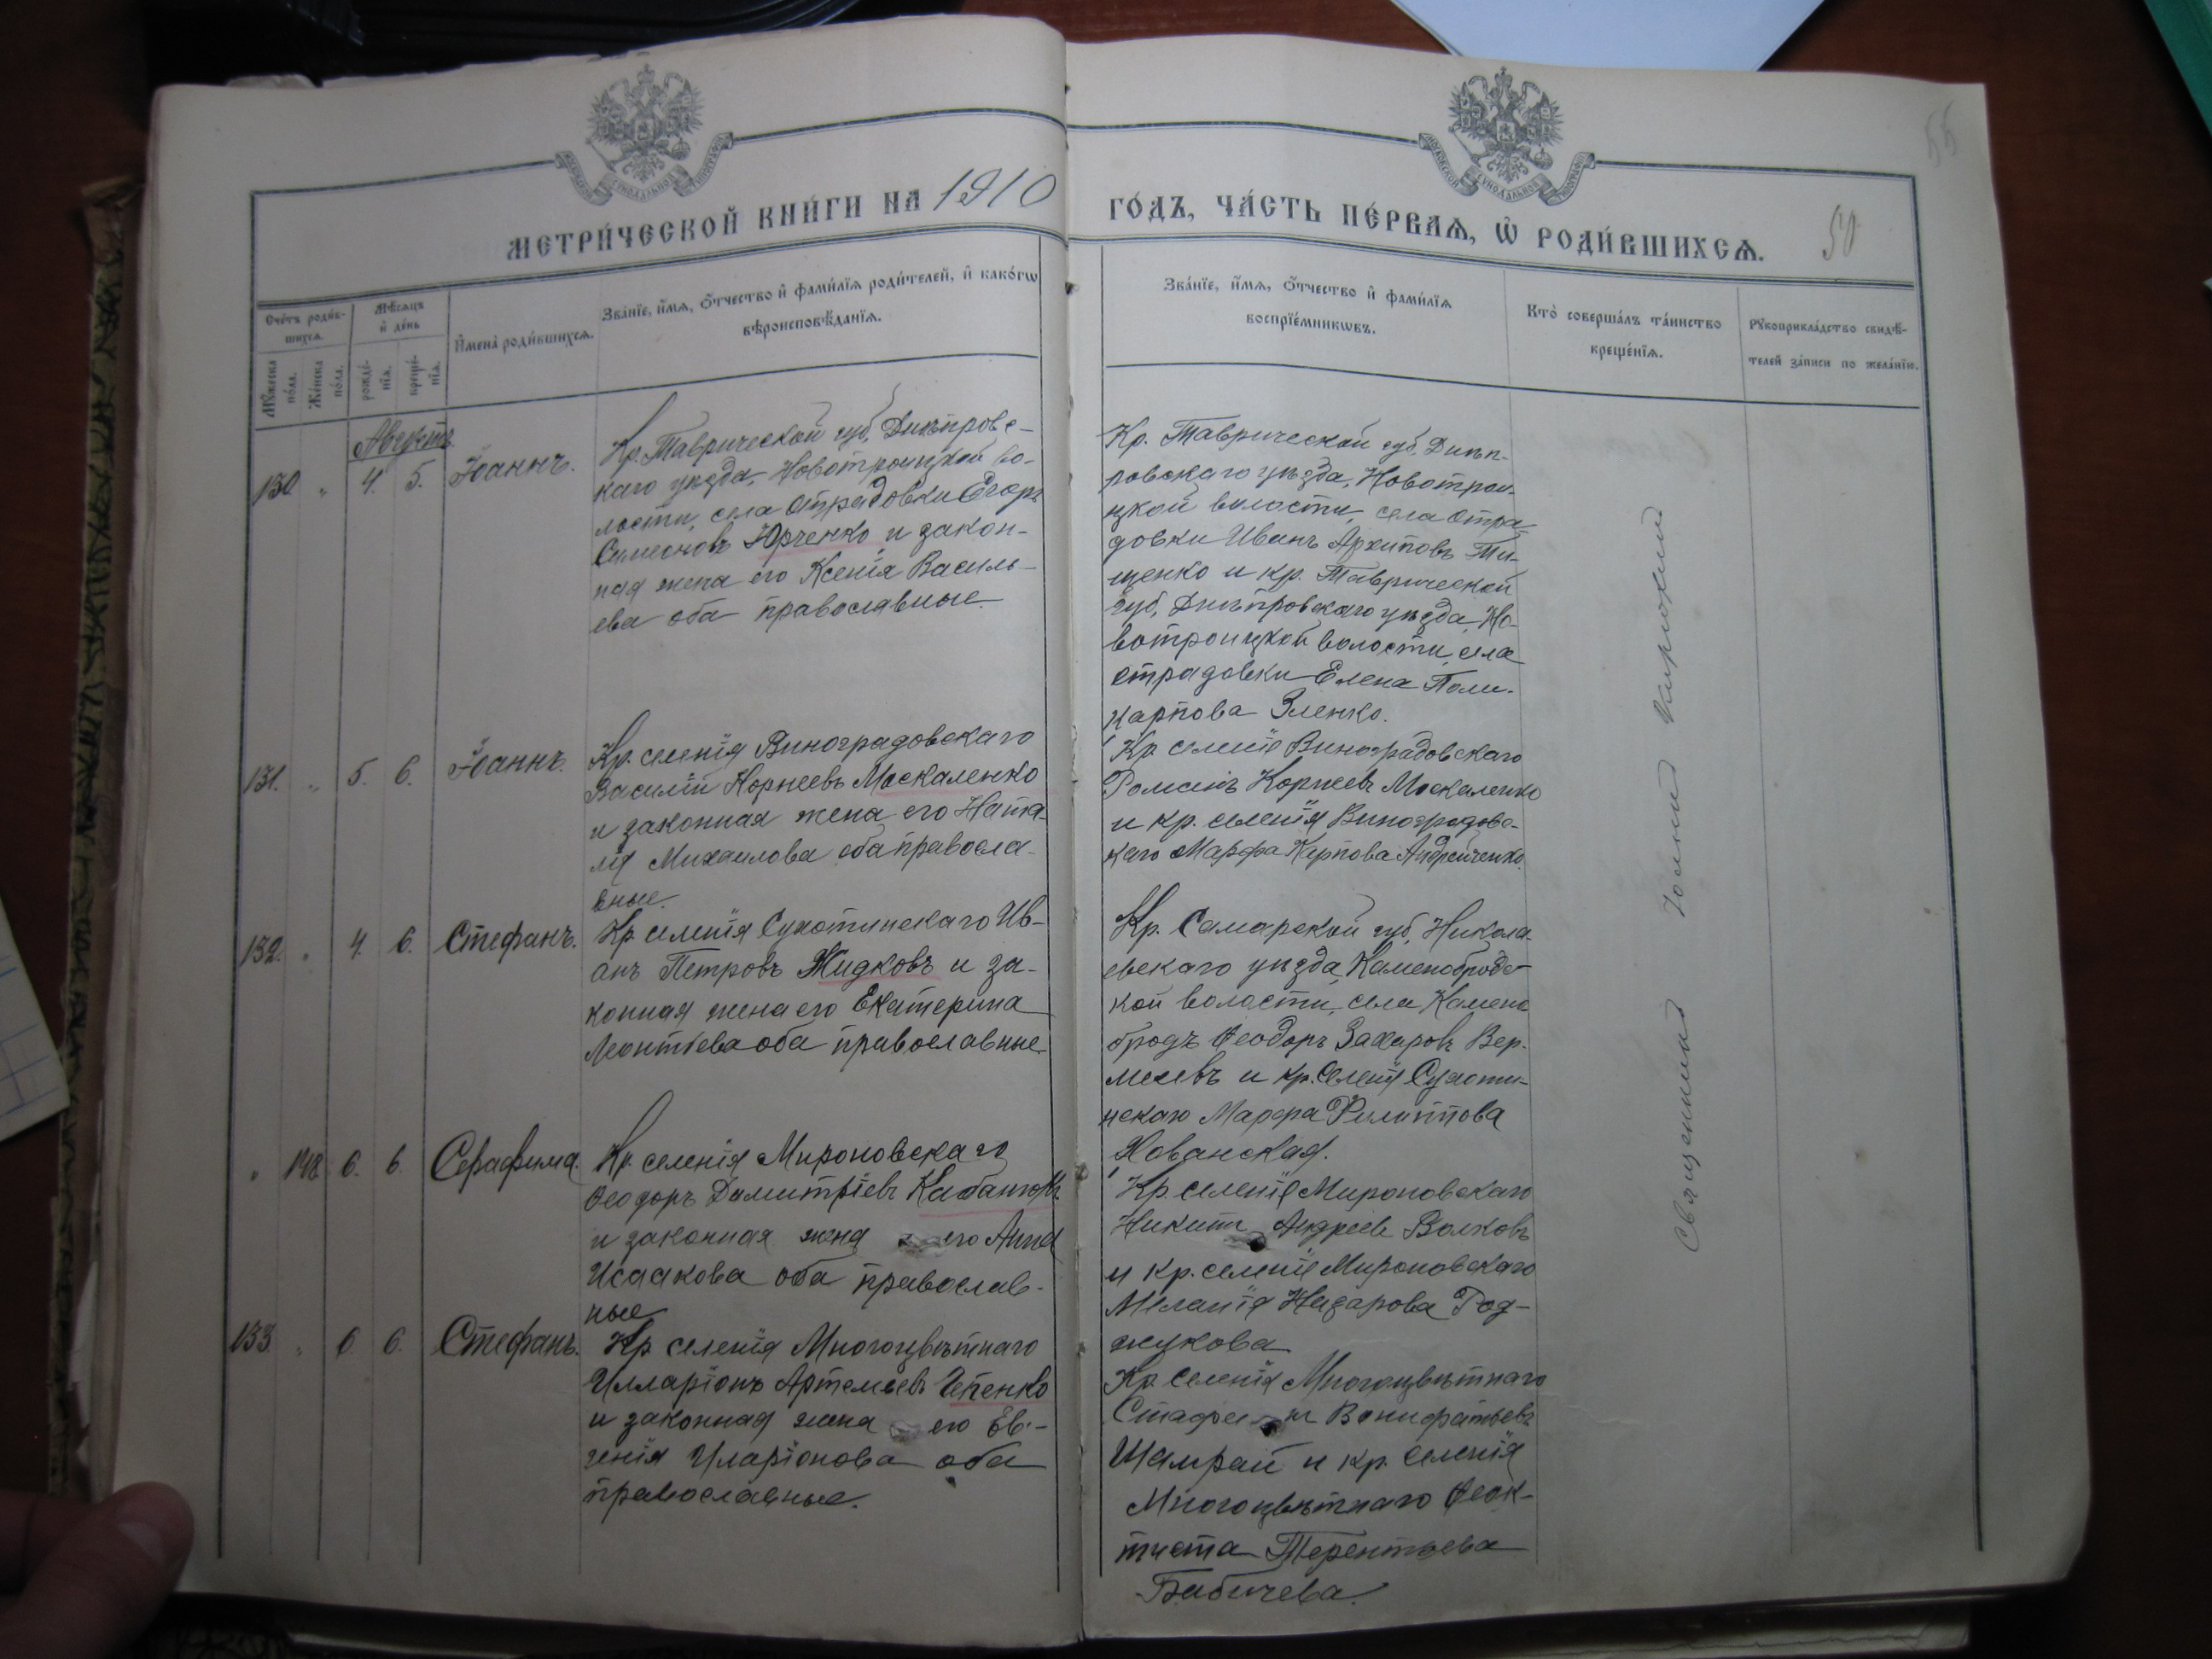 МЕТРИ́ЧЕСКОЙ КНИ́ГИ НА 1910
ГО́ДЪ, ЧА́СТЬ ПЕ́РВАѦ, Ѡ҆ РОДИ́ВШИХСѦ.
50
55
Сче́тъ роди́в-
шихсѧ.
Мꙋ́жеска
по́ла.
Же́нска
по́ла.
Мѣ́сѧцъ
и҆ де́нь
рожде́-
нїѧ.
креще́-
нїѧ.
И҆мена̀ роди́вшихсѧ.
Зва́нїе, и҆́мѧ, ѻ҆́тчество и҆ фами́лїѧ роди́телей, и҆ како́гѡ
вѣроисповѣ́данїѧ.
Зва́нїе, и҆́мѧ, ѻ҆́тчество и҆ фами́лїѧ
воспрїе́мникѡвъ.
Кто̀ соверша́лъ та́инство
креще́нїѧ.
Рꙋкоприкла́дство свидѣ́-
телей за́писи по жела́нїю.
Августъ
130 " 4. 5. Іоаннъ.
Кр. Таврической губ, Днѣпровс-
каго уѣзда, Новотроицкой во-
лости, села Отрадовки Егоръ
Симеоновъ Юрченко и закон-
ная жена его Ксенія Василь-
ева оба православные.
Кр. Таврической губ, Днѣп-
ровскаго уѣзда, Новотрои-
цкой волости, села Отра-
довки Иванъ Архиповъ Ти-
щенко и кр. Таврической
губ, Днѣпровскаго уѣзда, Но-
вотроицкой волости, села
Отрадовки Елена Поли-
карпова Зленко.
131. " 5. 6. Іоаннъ.
Кр. селенія Виноградовскаго
Василій Корнеевъ Москаленко
и законная жена его Ната-
лія Михаилова оба правосла-
вные.
Кр селенія Виноградовскаго
Романъ Корнеевъ Москаленко
и кр. селенія Виноградовс-
каго Марфа Карпова Андрейченко.
132. " 4. 6. Стефанъ.
Кр селенія Сухотинскаго Ив-
анъ Петровъ Жидковъ и за-
конная жена его Екатерина
Леонтьева оба православные.
Кр. Самарской губ, Никола-
евскаго уѣзда, Каменобродс-
кой волости, села Камено
бродъ Ѳеодоръ Захаровъ Вер-
 и кр. селенія Сухоти-
нскаго Марфа Филиппова
Хованская.
" 148 6. 6. Серафима.
Кр. селенія Мироновскаго
Ѳеодоръ Димитріевъ
и законная жена его Анна
Исаакова оба православ-
ные
Кр. селенія Мироновскаго
Никита Андреевъ Волковъ
и кр. селенія Мироновскаго
Меланія Назарова Год-
жукова
133 " 6 6. Стефанъ.
Кр селенія Многоцвѣтнаго
Илларіонъ Артемьевъ Чепенко
и законная жена его Ев-
генія Иларіонова оба
православные.
Кр. селенія Многоцвѣтнаго
Вонифатьевъ
Шамрай и кр. селенія
Многоцвѣтнаго Ѳеок-
тиста Терентьева
Бабичева.
Священникъ Іоаннъ